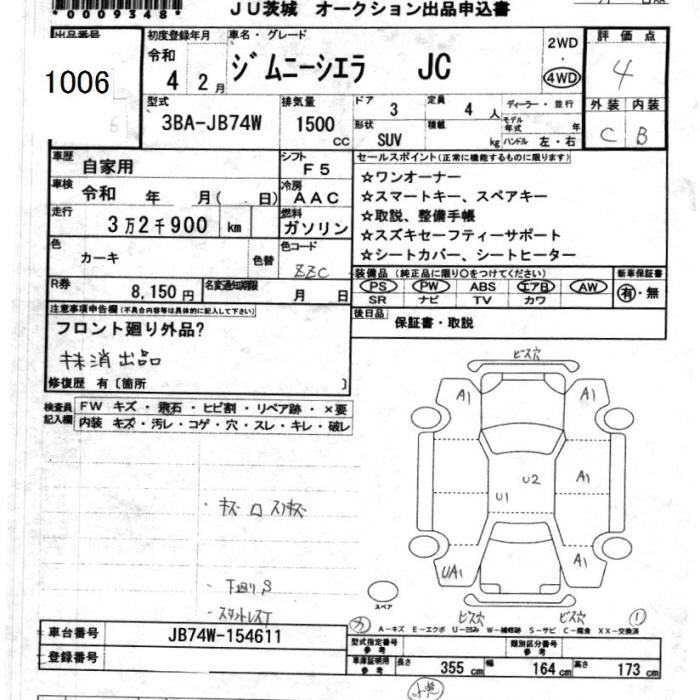 *0009348*
JU茨城 オークション出品申込書
出品番号
1006
初度登録年月
令和
4 2月
車名・グレード
ジムニーシエラ JC
2WD
・
4WD
評価点
4
外装 内装
C B
型式
3BA-JB74W
排気量
1500 CC
ドア 3
定員 4 人
形状 SUV
積載 kg
ディーラー・並行
モデル年式 年
ハンドル 左・右
車歴 自家用
シフト F5
車検 令和 年 月( 日)
冷房 AAC
走行 3万2千900 km
燃料 ガソリン
色 カーキ 色替
色コード ZZC
R券 8,150円
名変通知期限 月 日
セールスポイント(正常に機能するものに限ります)
☆ワンオーナー
☆スマートキー、スペアキー
☆取説、整備手帳
☆スズキセーフティーサポート
☆シートカバー、シートヒーター
装備品(純正品に限り○をつけてください)
新車保証書
PS PW ABS エアB AW
有・無
SR ナビ TV カワ
後日品 保証書・取説
注意事項申告欄(不具合内容等は具体的に記入して下さい)
フロント廻り外品?
抹消出品
修復歴 有〔箇所 〕
検査員記入欄
FW キズ・飛石・ヒビ割・リペア跡・×要
内装 キズ・汚レ・コゲ・穴・スレ・キレ・破レ
・キズ
・下廻りS
ビス穴
A1 A1
A1
U2
U1
UA1 A1
スペア
ビス穴 ビス穴
A-キズ E-エクボ U-凹み W-補修跡 S-サビ C-腐食 XX-交換済
1
車台番号 JB74W-154611
登録番号
型式指定番号 参考
類別区分番号 参考
車庫証明用 参考
長さ 355 cm
幅 164 cm
高さ 173 cm